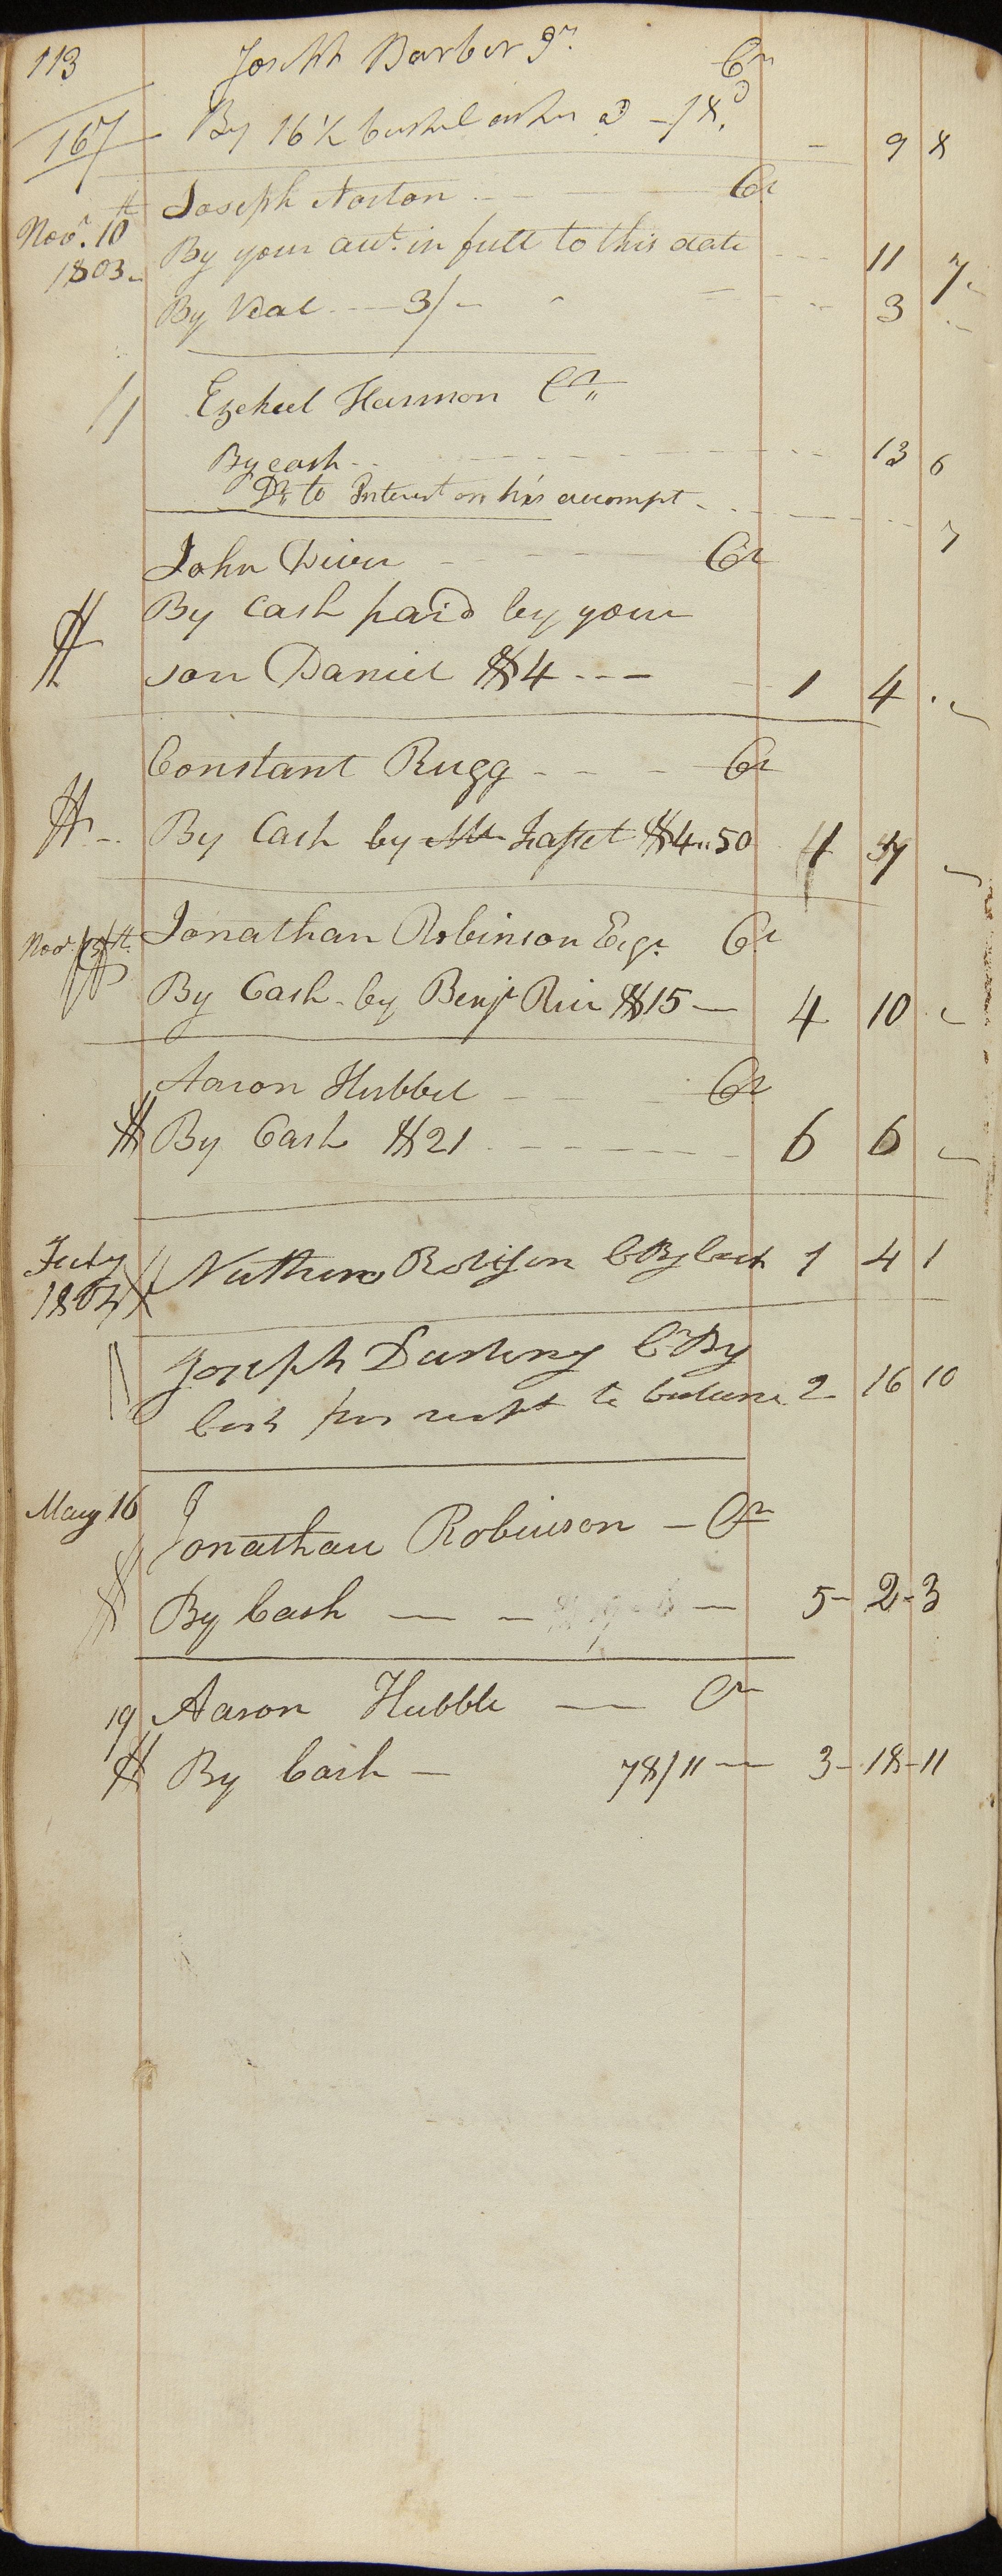 113 Joseph Barber Jr. Cr
167 By 16 1/2 bushel ashes @ -/8d - 9 8
Joseph Norton Cr
Novr. 10th 1803
By your acct. in full to this date 11 7
By Veal 3/- 3
Ezekiel Harmon Cr
By cash 13 6
Dr to Interest on his accompt 7
John Cr
By Cash paid by your
son Daniel $4 --- 1 4
Constant Rugg Cr
By Cash by $4..50 7
Nov. Jonathan Robinson Esqr. Cr
By Cash by Benjn $15 — 4 10
Aaron Hubbel Cr
By Cash $21 6 6
July 1804 Robison C By Cash 1 4 1
Joseph C By
Cash per to balance 2 16 10
May 16
Jonathan Robinson — Cr
By Cash — — — 5-2-3
19 Aaron Hubble — Cr
By Cash — 78/11 — 3-18-11